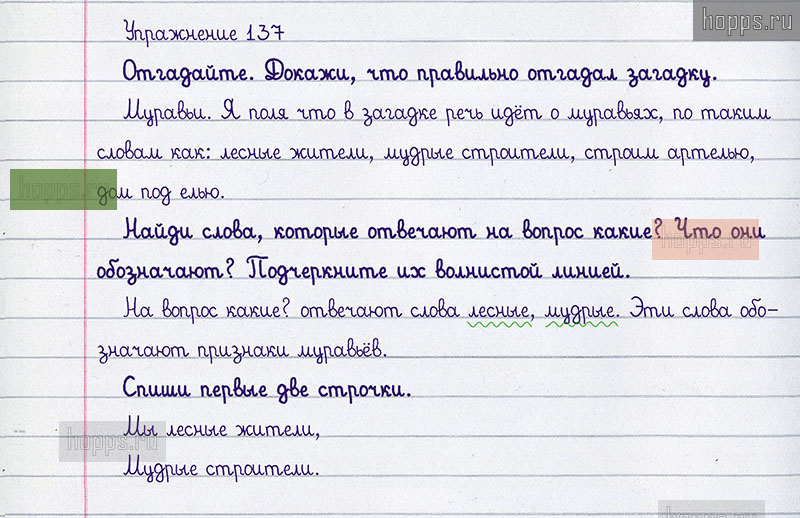 hopps.ru
Упражнение 137
Отгадайте. Докажи, что правильно отгадал загадку.
Муравьи. Я поля что в загадке речь идёт о муравьях, по таким
словам как: лесные жители, мудрые строители, строим артелью,
hopps.ru
дом под елью.
Найди слова, которые отвечают на вопрос какие? Что они
hopps.ru
обозначают? Подчеркните их волнистой линией.
На вопрос какие? отвечают слова лесные, мудрые. Эти слова обо-
значают признаки муравьёв.
Спиши первые две строчки.
Мы лесные жители,
hopps.ru
Мудрые строители.
hopps.ru